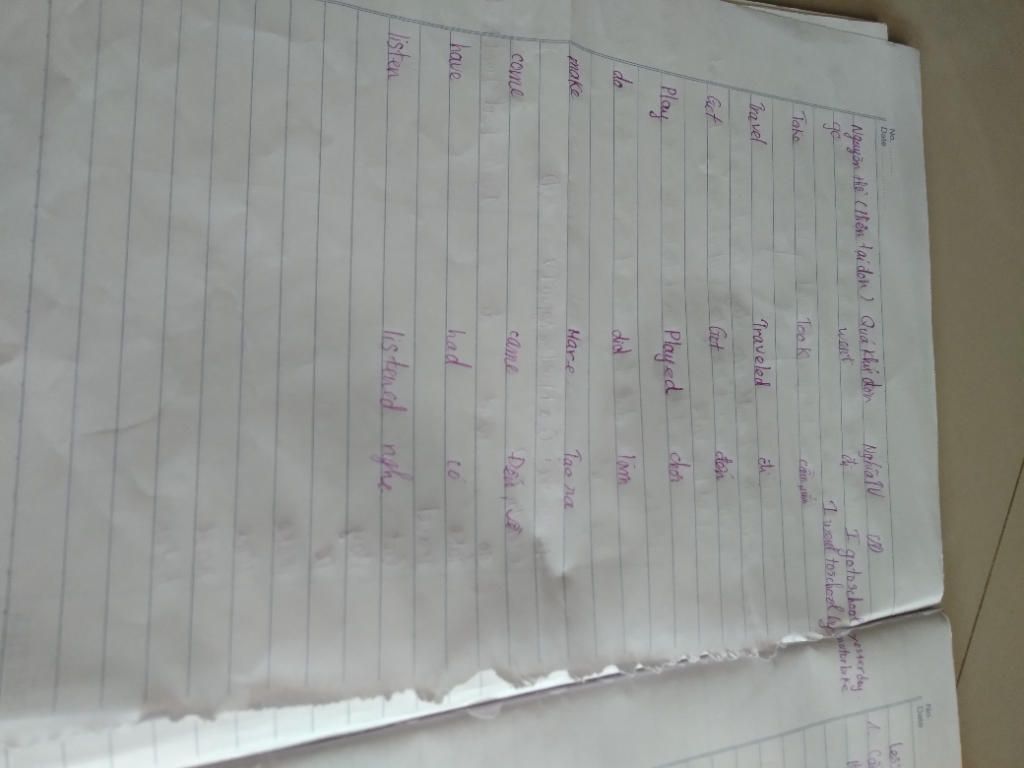 No.
Date
Nguyên thể (hiện tại đơn) Quá khứ đơn Nghĩa TV CD
go went đi I go to school yesterday
I went to school by motorbike
Take Took cầm, nắm
Travel Traveled đi
Get Got đến
Play Played chơi
do did làm
make Mare Tạo ra
come came Đến, về
have had có
listen listend nghe
No.
Date
1.